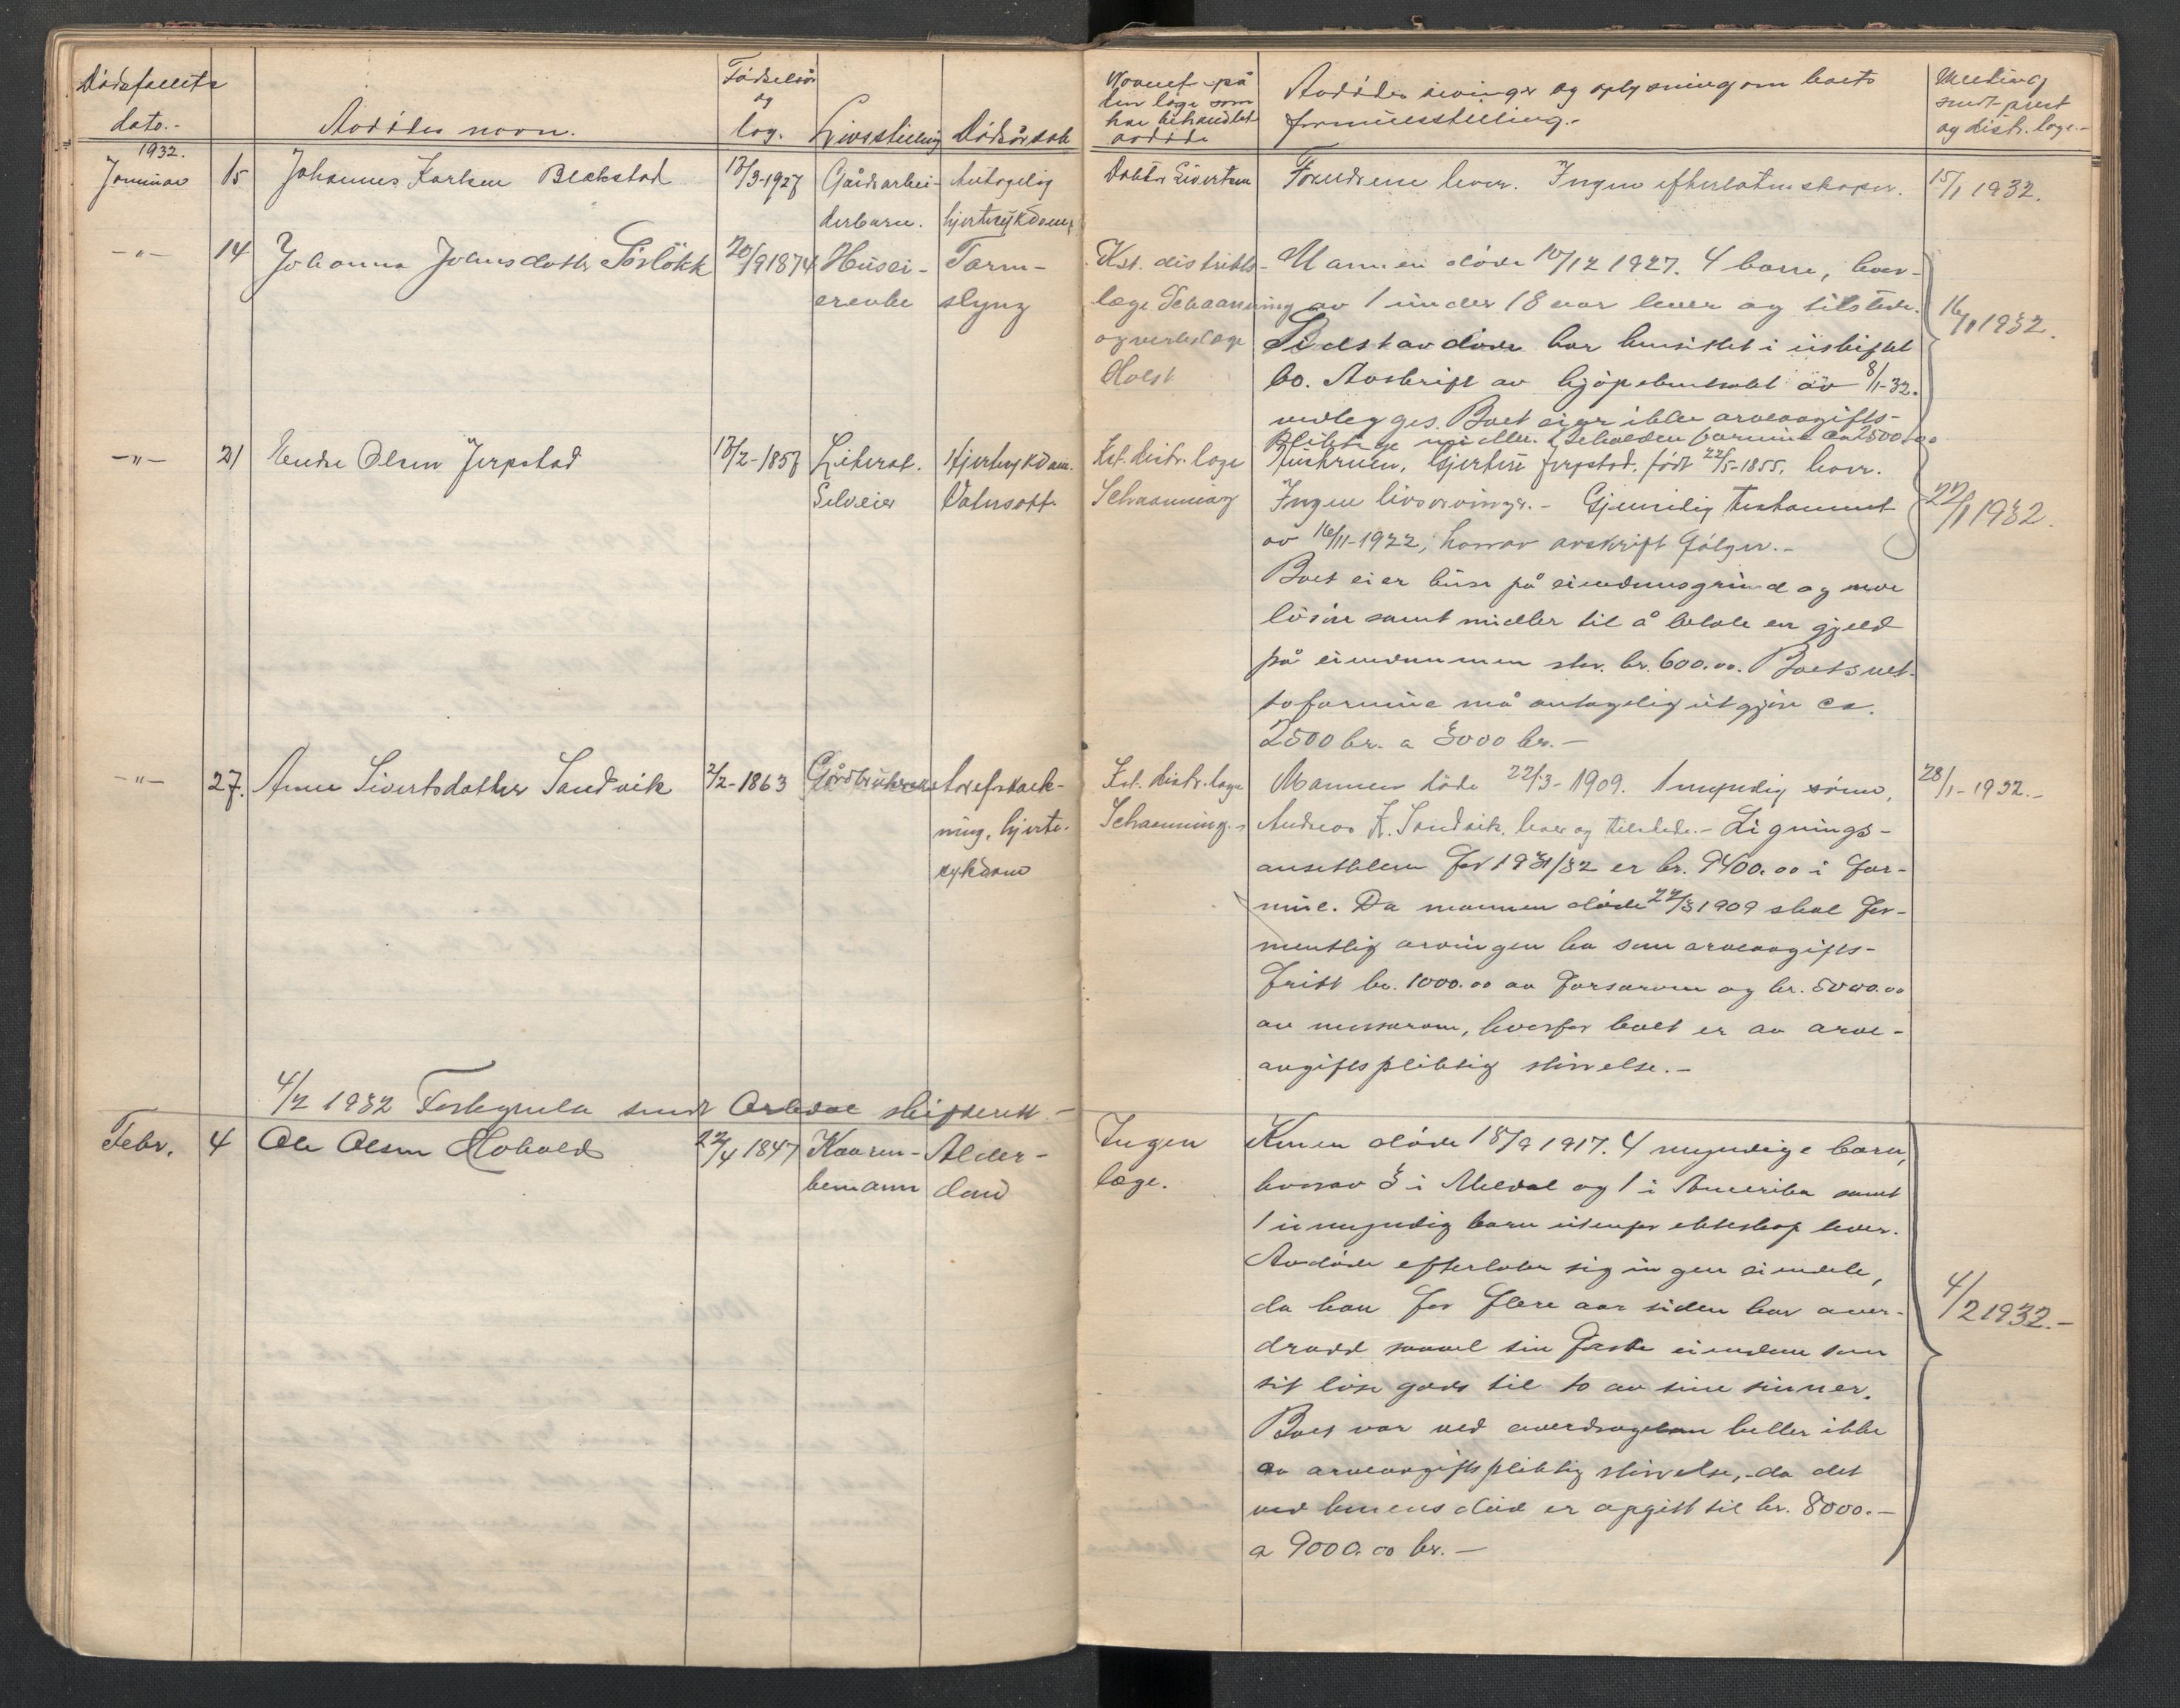 Dødsfallets
dato.-
Avdødes navn.
Fødselsår
og
dag.
Livsstilling
Dødsårsak
Navnet på
den læge som
har behandlet
avdøde
Avdødes arvinger og oplysning om boets
formuesstilling.-
Melding
sendt prest
og distr. læge.-
1932.
Januar 15 Johannes Karlsen Blekstad 17/3-1927 Gårdsarbei-
derbarn.
Antagelig
hjertesykdom
Doktor Sivertsen
Foreldrene lever. Ingen efterlatenskaper.
15/1 1932.
-"- 14 Johanna Johnsdatter Sørløkk 20/9 1874 Husei-
erenke
Tarm-
slyng
Kst. distrikts-
læge Schaanning
og verkslæge
Holst
Mannen døde 10/12 1927. 4 barn, hvor-
av 1 under 18 aar lever og tilstede.
Sidstavdøde har hensittet i uskiftet
bo. Avskrift av kjøpekontrakt av 8/1-32.
vedlegges. Boet eier ikke arveavgifts-
pliktige midler. Beholden formue ca 2500.00
16/1 1932.
-"- 21 Endre Olsen Jerpstad 13/2-1857
Selveier
Hjertesykdom.
Vatersott.
Kst. distr. læge
Schaanning
Hustruen, Gjertine Jerpstad, født 22/5-1855, lever.
Ingen livsarvinger.- Gjensidig testament
av 16/11-1922, hvorav avskrift følger.-
Boet eier huse på eiendomsgrund og noe
løsøre samt midler til å betale en gjeld
på eiendommen stor kr. 600.00. Boets net-
toformue må antagelig utgjøre ca.
2500 kr. a 3000 kr.-
22/1 1932.
-"- 27. Anne Sivertsdatter Sandvik 2/2-1863 Gårdbrukerenke
ning, hjerte-
sykdom
Kst. distr. læge
Schaanning.-
Mannen døde 22/3-1909. 1 myndig sønn,
Andreas K. Sandvik, lever og tilstede.- Lignings-
ansettelsen for 1931/32 er kr. 9400.00 i for-
mue. Da mannen døde 22/3 1909 skal for-
mentlig arvingen ha som arveavgifts-
fritt kr. 1000.00 av farsarven og kr. 5000.00
av morsarven, hvorfor boet er av arve-
avgiftspliktig størrelse.-
28/1-1932.-
4/2 1932 Fortegnelse sendt Orkdal skifterett.-
Febr. 4 Ole Olsen Hovold 22/4 1847 Kaaren-
kemann
Alder-
dom
Ingen
læge.
Konen døde 18/9 1917. 4 myndige barn,
hvorav 3 i Meldal og 1 i Amerika samt
1 umyndig barn utenfor ekteskap lever.
Avdøde efterlater sig ingen eiendele,
da han for flere aar siden har over-
dradd saavel sin faste eiendom som
sit løse gods til to av sine sønner.
Boet var ved overdragelsen heller ikke
av arveavgiftspliktig størrelse, da det
ved konens død er opgitt til kr. 8000.-
a 9000.00 kr.-
4/2 1932.-